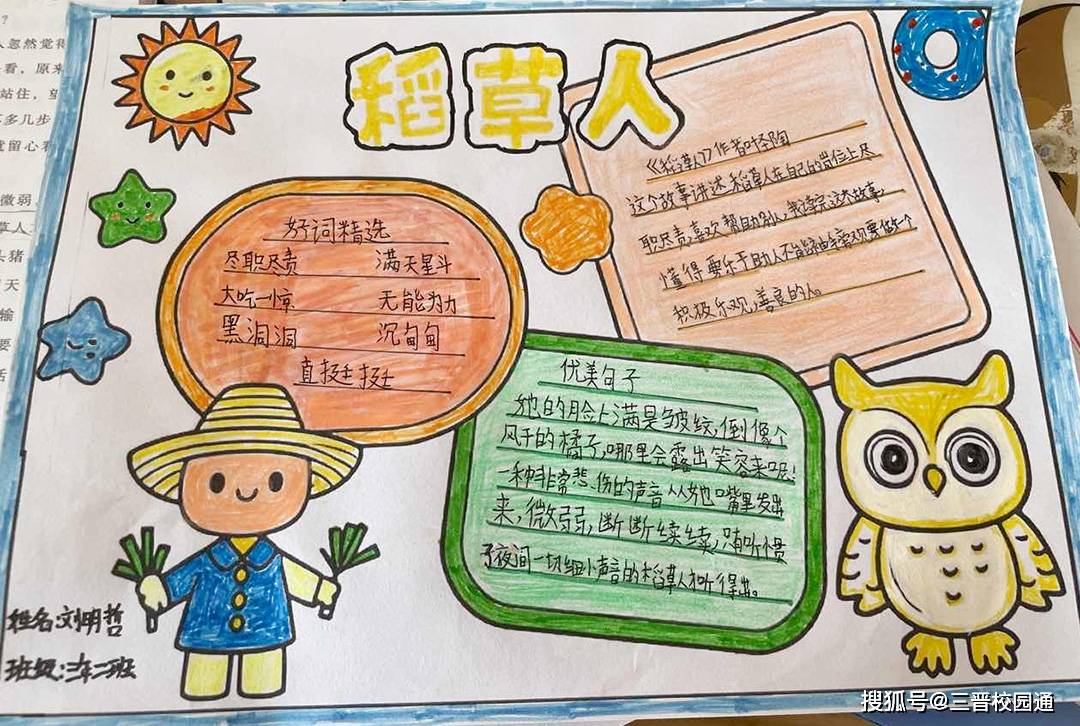 稻草人
《稻草人》作者叶圣陶
这个故事讲述稻草人在自己的岗位上尽
职尽责,喜欢帮助别人,我读完这本故事,
懂得要乐于助人不能 要做个
积极乐观,善良的人。
好词精选
尽职尽责 满天星斗
大吃一惊 无能为力
黑洞洞 沉甸甸
直挺挺
优美句子
她的脸上满是皱纹,倒像个
风干的橘子,哪里会露出笑容来呢!
一种非常悲伤的声音从她嘴里发出
来,微弱,断断续续,只有听惯
了夜间一切细小声音的稻草人才听得出。
姓名:刘明哲
班级:三年二班
？
人忽然觉得
看，原来
站住，望
多几步
就留心看
微弱，
草人
头猪
天
输
要
活
搜狐号@三晋校园通